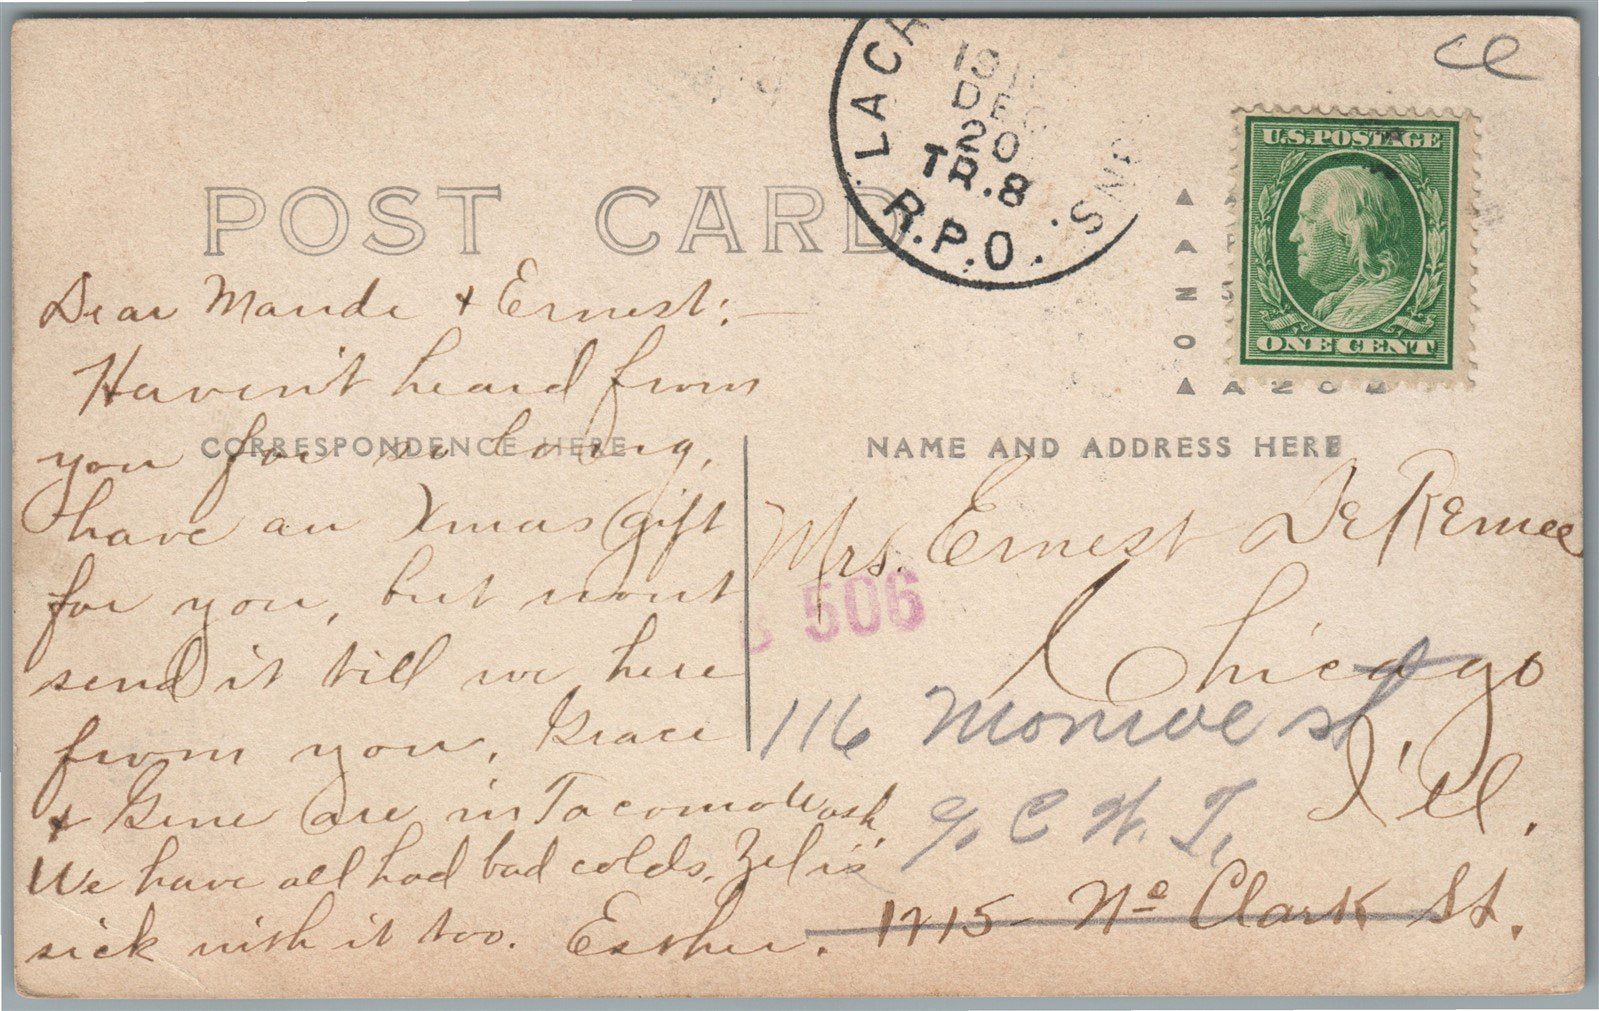 ce
LACR
191
DEC
20
TR.8
R.P.O.
U.S. POSTAGE
ONE CENT
AZO
POST CARD
Dear Maude + Ernest:—
Haven't heard from
you for so long,
have an Xmas gift
for you, but wont
send it till we here
from you. Grace
+ Gene are in Tacoma Wash.
We have all had bad colds. Zel is
sick with it too. Esther.
CORRESPONDENCE HERE
NAME AND ADDRESS HERE
Mrs. Ernest DeRemee
506
Chicago
Ill.
116 Monroe st
c/o C W. T.
1715 No Clark St.